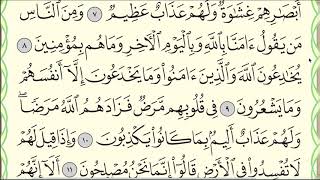 أَبْصَارِهِمْ غِشَاوَةٌ وَلَهُمْ عَذَابٌ عَظِيمٌ ٧ وَمِنَ النَّاسِ
مَن يَقُولُ ءَامَنَّا بِاللَّهِ وَبِالْيَوْمِ الْآخِرِ وَمَا هُم بِمُؤْمِنِينَ ٨
يُخَادِعُونَ اللَّهَ وَالَّذِينَ ءَامَنُوا وَمَا يَخْدَعُونَ إِلَّا أَنفُسَهُمْ
وَمَا يَشْعُرُونَ ٩ فِي قُلُوبِهِم مَّرَضٌ فَزَادَهُمُ اللَّهُ مَرَضًا
وَلَهُمْ عَذَابٌ أَلِيمٌ بِمَا كَانُوا يَكْذِبُونَ ١٠ وَإِذَا قِيلَ لَهُمْ
لَا تُفْسِدُوا فِي الْأَرْضِ قَالُوا إِنَّمَا نَحْنُ مُصْلِحُونَ ١١ أَلَا إِنَّهُمْ